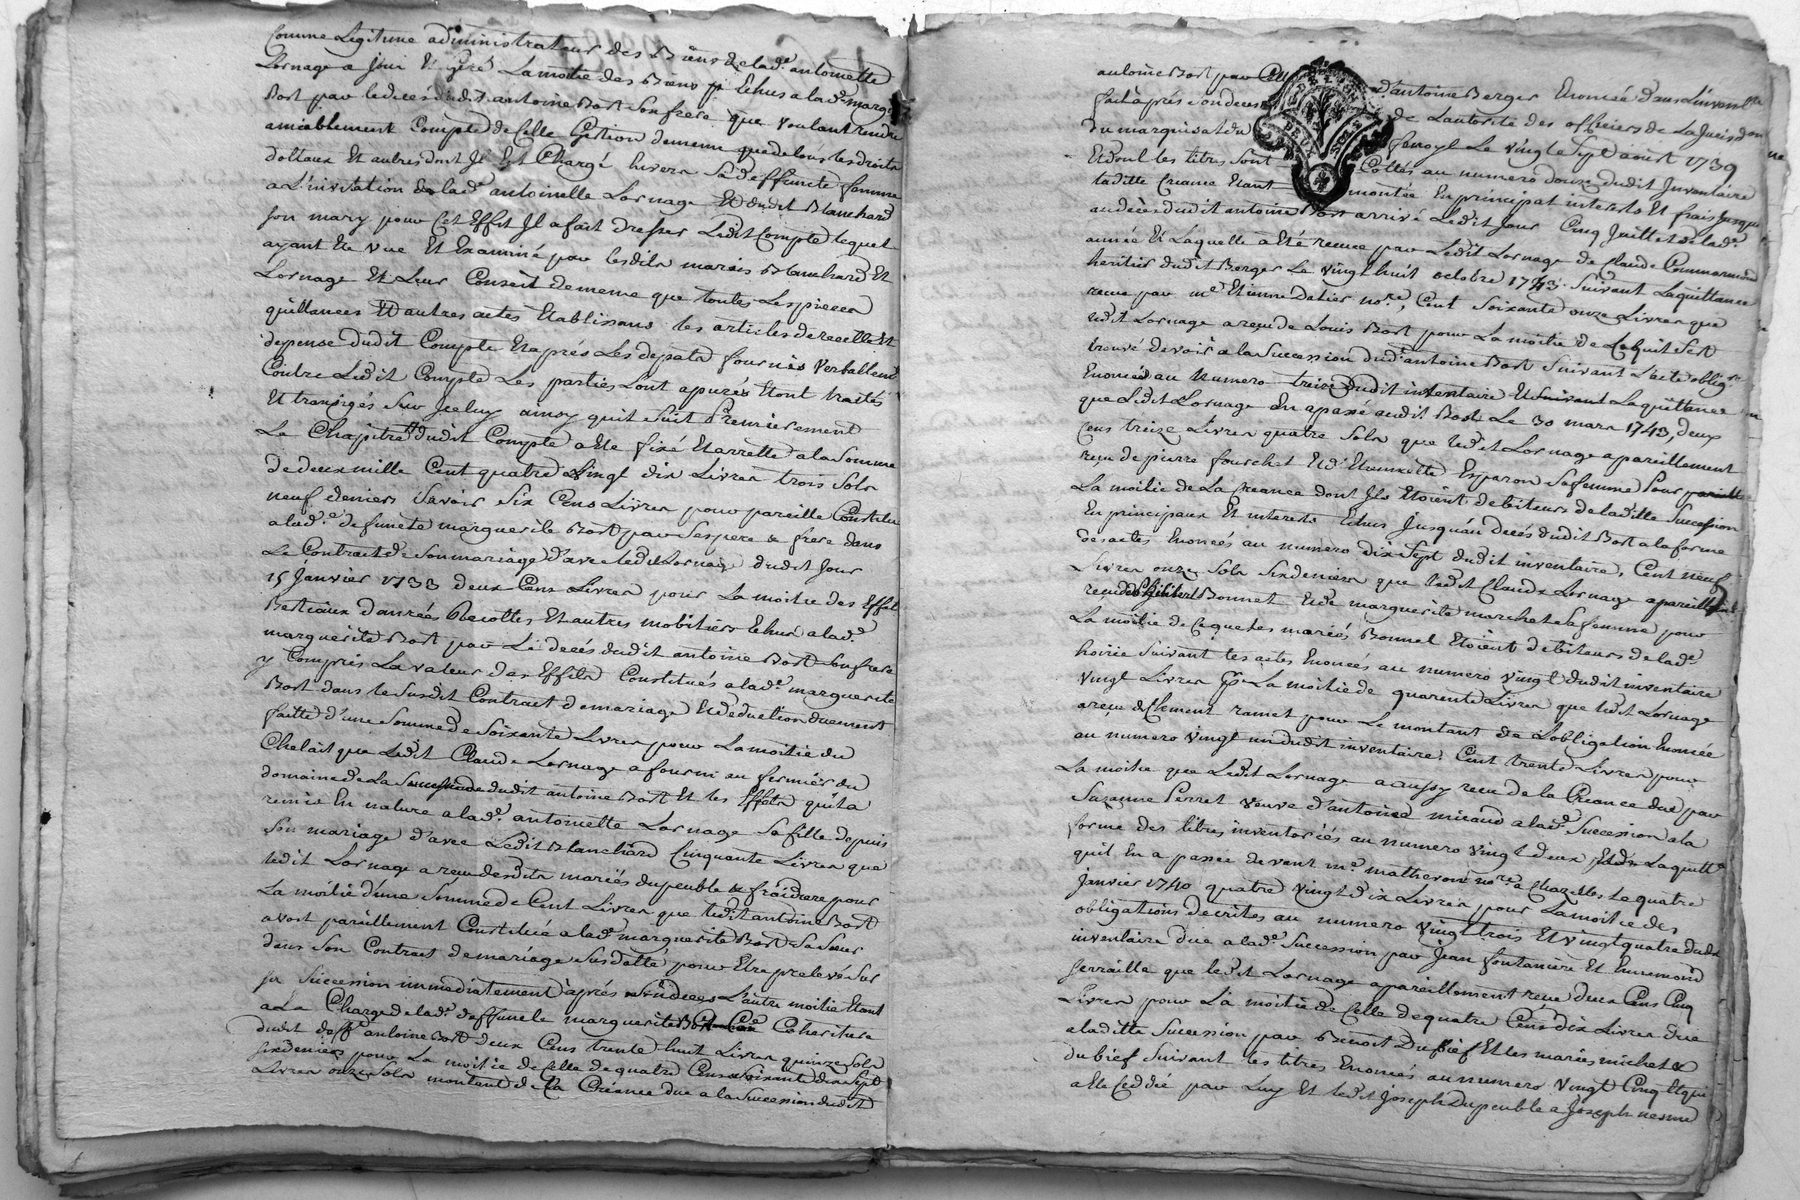 Comme Legitime administrateur des Biens de lad.e antoinette
Lornage a joui Et geré La moitié des Biens Echus a lad.e marg.te
Bost par le decés dudit antoine Bost Son frere que voulant rendre
amiablement Compte de Celle Gestion de meme que de tous les droits
dottaux Et autres dont Il Est Chargé Envers Sa deffuncte femme
a L'invitation de lad.e antoinette Lornage Et dudit Blanchard
Son mary pour Cet Effet Il a fait dresser Ledit Compte lequel
ayant Eté vue Et Examiné par lesdits mariés Blanchard Et
Lornage Et Leur Conseil de meme que toutes Les pieces
quittances Et autres actes Etablissans les articles de recette Et
depense dudit Compte Et aprés Les debats fournis verballem.t
Contre Ledit Compte Les parties Sont apurés Et ont traités
Et transigés Sur Iceluy ainsy quil Suit Premierement
Le Chapitre dudit Compte a Eté fixé Et arretté a la Somme
de deux mille Cent quatre Vingt dix Livres trois Sols
neuf deniers Savoir Six Cens Livres pour pareille Constitu
a lad.e defuncte marguerite Bost par Ses pere & frere dans
Le Contract de Son mariage d'avec ledit Lornage dudit Jour
15 Janvier 1733 deux Cens Livres pour La moitié des Effets
Bestiaux danrées Recoltes Et autres mobiliers Echus a lad.e
marguerite Bost par Le decés dudit antoine Bost Son frere
y Compris La valeur des Effets Constitués a lad.e marguerite
Bost dans le Susdit Contract de mariage Et deduction duement
faitte d'une Somme de Soixante Livres pour La moitié du
Chelait que Ledit Claude Lornage a fourni au fermier du
domaine de La Succession dudit antoine Bost Et les Effets quil a
remis En nature a lad.e antoinette Lornage Sa fille depuis
Son mariage d'avec Ledit Blanchard Cinquante Livres que
ledit Lornage a recu desdits mariés dupeuble & froidiere pour
La moitié d'une Somme de Cent Livres que ledit antoine Bost
avoit pareillement Constituée a lad.e marguerite Bost Sa Soeur
dans Son Contract de mariage Susdatté pour Etre prelevé Sur
Sa Succession immediatement aprés Son deces L'autre moitié Etant
a La Charge de lad.e deffuncte marguerite Bost Coheritiere
dudit deff.t antoine Bost deux Cens trente huit Livres quinze Sols
Six deniers pour La moitié de Celle de quatre Cens Soixante dix Sept
Livres onze Sols montant de La Créance due a la Succession dudit
antoine Bost par
d'antoine Berger Enoncée dans L'invent.re
fait aprés Son deces
de L'autorité des officiers de La Jurisdon
du marquisat du
fenoyl Le vingt Sept aoust 1739
Et dont les titres Sont
Cottés au numero douze dudit Inventaire
laditte Creance Etant
montée En principal interets Et frais Jusques
au decés dudit antoine Bost arrivé Ledit Jour Cinq Juillet de lad.e
année Et Laquelle a Eté recue par Ledit Lornage de Claude Commarmond
heritier dudit Berger Le vingt huit octobre 1743 Suivant La quittance
recue par m.e Etienne Dalier no.re, Cent Soixante onze Livres que
ledit Lornage a reçu de Louis Bost pour La moitié de Ce quil S'est
trouvé devoir a la Succession dud.t antoine Bost Suivant L'acte oblig.re
Enoncé au Numero treize dudit inventaire Et Suivant La quittance
que Ledit Lornage En a passé audit Bost Le 30 mars 1743, deux
Cens treize Livres quatre Sols que ledit Lornage a pareillement
reçu de pierre fourchet Et d'Ennemette Esparon Sa femme Pour pareille
La moitié de La Creance dont Ils Etoient debiteurs de laditte Succession
En principaux Et interets Echus Jusqu'au decés dudit Bost a la forme
des actes Enoncés au numero dix Sept dudit inventaire, Cent neuf
Livres onze Sols Six deniers que ledit Claude Lornage a pareillement
reçu de Gilibert Bonnet Et de marguerite marchet Sa femme pour
La moitié de Ce que les mariés Bonnet Etoient debiteurs de lad.e
hoirie Suivant les actes Enoncés au numero vingt dudit inventaire
vingt Livres pr La moitié de quarente Livres que ledit Lornage
a reçu de Clement ramet pour Le montant de L'obligation Enoncée
au numero vingt un dudit inventaire, Cent trente Livres pour
La moitié que Ledit Lornage a aussy reçu de la Creance due par
Suzanne Perret veuve d'antoine miraud a lad.e Succession a la
forme des titres inventoriés au numero vingt deux Et de La quitt.e
quil En a passée devant m.e matheron no.re a Chazelles Le quatre
janvier 1740 quatre vingt dix Livres pour La moitié des
obligations decrites au numero vingt trois Et vingt quatre dudit
inventaire due a lad.e Succession par Jean fontaniere Et Ennemond
ferraille que ledit Lornage a pareillement recue deux Cens Cinq
Livres pour La moitié de Celle de quatre Cens dix Livres due
a laditte Succession par Benoit Dubief Et les mariés michel &
Dubief Suivant les titres Enoncés au numero vingt Cinq Et qui
a Eté Ceddée par Luy Et ledit Joseph Dupeuble a Joseph nesme